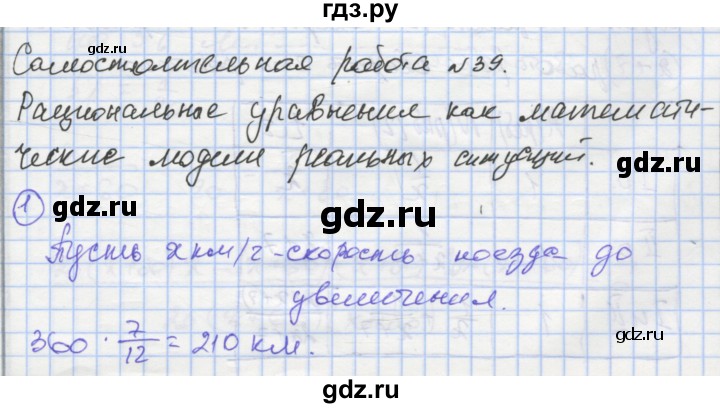 гдз.ру
Самостоятельная работа №39.
gdz.ru
Рациональные уравнения как математи-
ческие модели реальных ситуаций.
gdz.ru
1 gdz.ru
gdz.ru
Пусть x км/ч - скорость поезда до
увеличения.
360 · 7/12 = 210 км.
gdz.ru
gdz.ru
gdz.ru